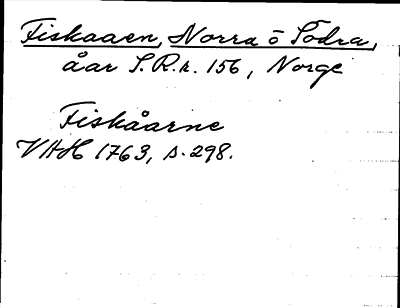 Fiskaaen, Norra o Södra,
åar S.R.r. 156, Norge
Fiskåarne
VAH 1763, s. 298.